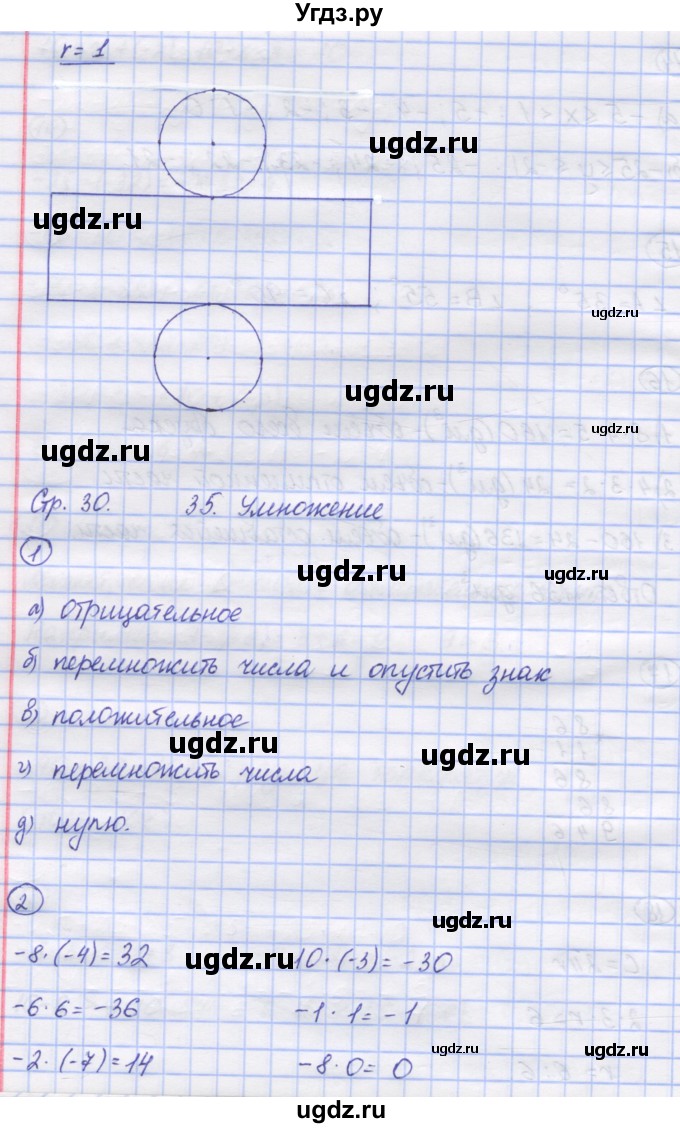 Угдз.ру
r = 1
ugdz.ru
ugdz.ru
ugdz.ru
ugdz.ru
ugdz.ru
ugdz.ru
Стр. 30. 35. Умножение
1
ugdz.ru
ugdz.ru
а) отрицательное
б) перемножить числа и опустить знак
в) положительное
ugdz.ru
ugdz.ru
г) перемножить числа
д) нулю.
2
ugdz.ru
-8·(-4)=32 10·(-3)=-30
ugdz.ru
-6·6=-36 -1·1=-1
ugdz.ru
ugdz.ru
-2·(-7)=14 -8·0=0
ugdz.ru